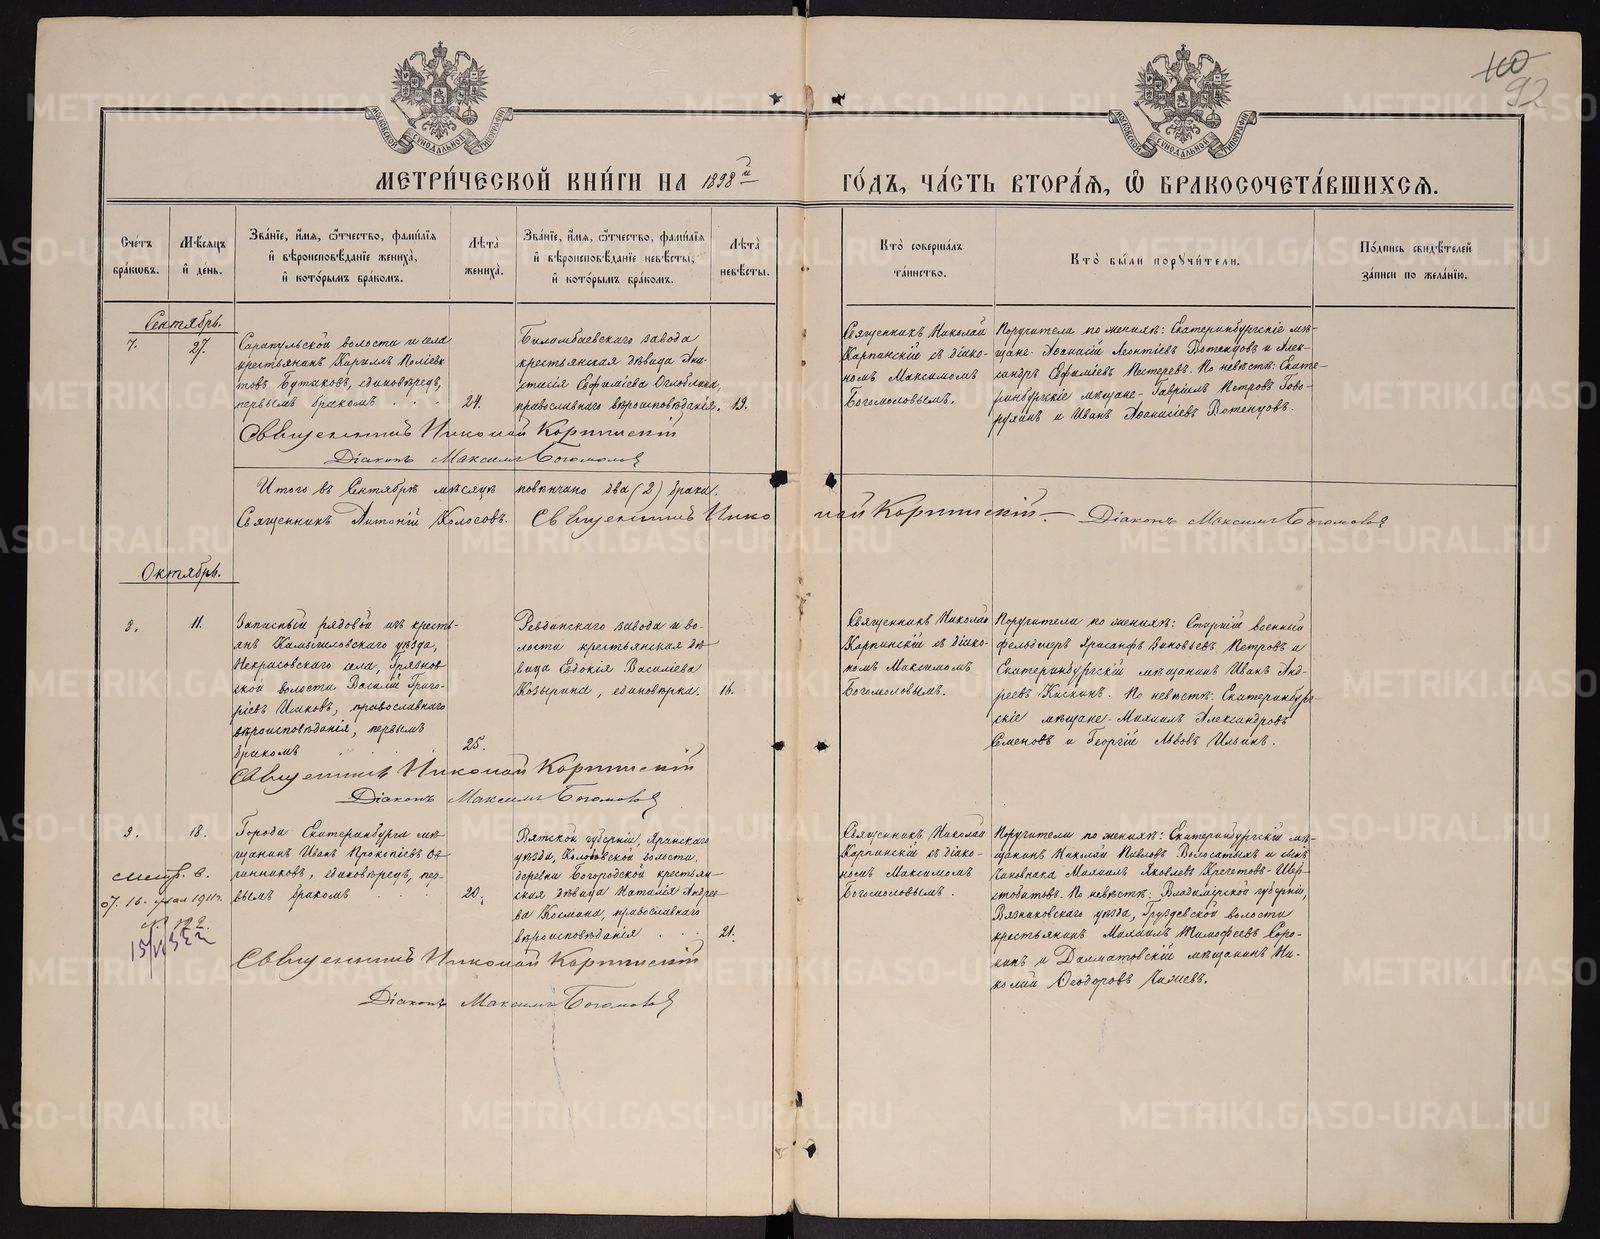 100
92
МОСКОВСКОЙ СѴНОДАЛЬНОЙ ТИПОГРАФІИ
МОСКОВСКОЙ СѴНОДАЛЬНОЙ ТИПОГРАФІИ
МЕТРИ́ЧЕСКОЙ КНИ́ГИ НА 1898й
ГО́ДЪ, ЧА́СТЬ ВТОРА́Я, Ѽ БРАКОСОЧЕТА́ВШИХСЯ.
Сче́тъ
бра́ковъ.
Мѣ́сяцъ
и҆ де́нь.
Зва́нїе, и҆́мя, ѻ҆́тчество, фами́лїя
и҆ вѣроисповѣ́данїе жениха̀,
и҆ кото́рымъ бра́комъ.
Лѣ́та̀
жениха̀.
Зва́нїе, и҆́мя, ѻ҆́тчество, фами́лїя
и҆ вѣроисповѣ́данїе невѣ́сты,
и҆ кото́рымъ бра́комъ.
Лѣ́та̀
невѣ́сты.
Кто̀ соверша́лъ
та́инство.
Кто̀ бы́ли порꙋчи́тели.
По́дпись свидѣ́телей
за́писи по жела́нїю.
Сентябрь.
7.
27.
Сарапульской волости и села
крестьянинъ Кириллъ Поліевк
товъ Бутаковъ, единовѣрецъ,
первымъ бракомъ . . .
24.
Билимбаевскаго завода
крестьянская дѣвица Ана-
стасія Ефиміева Оглоблина,
православнаго вѣроисповѣданія.
19.
Священникъ Николай
Карпинскій съ діако-
номъ Максимомъ
Богомоловымъ.
Поручители по женихѣ: Екатеринбургскіе мѣ-
щане Аѳанасій Леонтіевъ Вотенцовъ и Алек-
сандръ Ефиміевъ Пестеревъ. По невѣстѣ: Екате-
ринбургскіе мѣщане - Гавріилъ Петровъ Гово-
рухинъ и Иванъ Аѳанасіевъ Вотенцовъ.
Священникъ Николай Карпинскій
Діаконъ Максимъ Богомоловъ
Итого въ Сентябрѣ мѣсяцѣ повѣнчано два (2) брака.
Священникъ Антоній Колосовъ. Священникъ Николай Карпинскій. Діаконъ Максимъ Богомоловъ
Октябрь.
8.
11.
Запасный рядовой изъ кресть-
янъ Камышловскаго уѣзда,
Некрасовскаго села, Грязнов
ской волости Василій Григо-
ріевъ Ушаковъ, православнаго
вѣроисповѣданія, первымъ
бракомъ . . .
25.
Ревдинскаго завода и во-
лости крестьянская дѣ
вица Евдокія Василіева
Козырина, единовѣрка.
16.
Священникъ Николай
Карпинскій съ діако-
номъ Максимомъ
Богомоловымъ.
Поручители по женихѣ: Старшій военный
фельдшеръ Хрисанфъ Зиновьевъ Петровъ и
Екатеринбургскій мѣщанинъ Иванъ Анд-
реевъ Кискинъ. По невѣстѣ: Екатеринбург-
скіе мѣщане - Михаилъ Александровъ
Семеновъ и Георгій Львовъ Ильинъ.
Священникъ Николай Карпинскій
Діаконъ Максимъ Богомоловъ
9.
18.
Города Екатеринбурга мѣ-
щанинъ Иванъ Прокопіевъ Ов
чинниковъ, единовѣрецъ, пер-
вымъ бракомъ . . .
20.
Вятской губерніи, Яранскаго
уѣзда, волости,
деревни Богородской крестьян-
ская дѣвица Наталія Андрее-
ва Космина, православнаго
вѣроисповѣданія . . .
21.
Священникъ Николай
Карпинскій съ діако-
номъ Максимомъ
Богомоловымъ.
Поручители по женихѣ: Екатеринбургскій мѣ-
щанинъ Николай Павловъ Волосатыхъ и сынъ
чиновника Михаилъ Яковлевъ
По невѣстѣ: Владимірской губерніи,
Вязниковскаго уѣзда, Груздевской волости
крестьянинъ Михаилъ Тимофеевъ Соро-
кинъ и Далматовскій мѣщанинъ Ни-
колай Ѳеодоровъ
Священникъ Николай Карпинскій
Діаконъ Максимъ Богомоловъ
METRIKI.GASO-URAL.RU